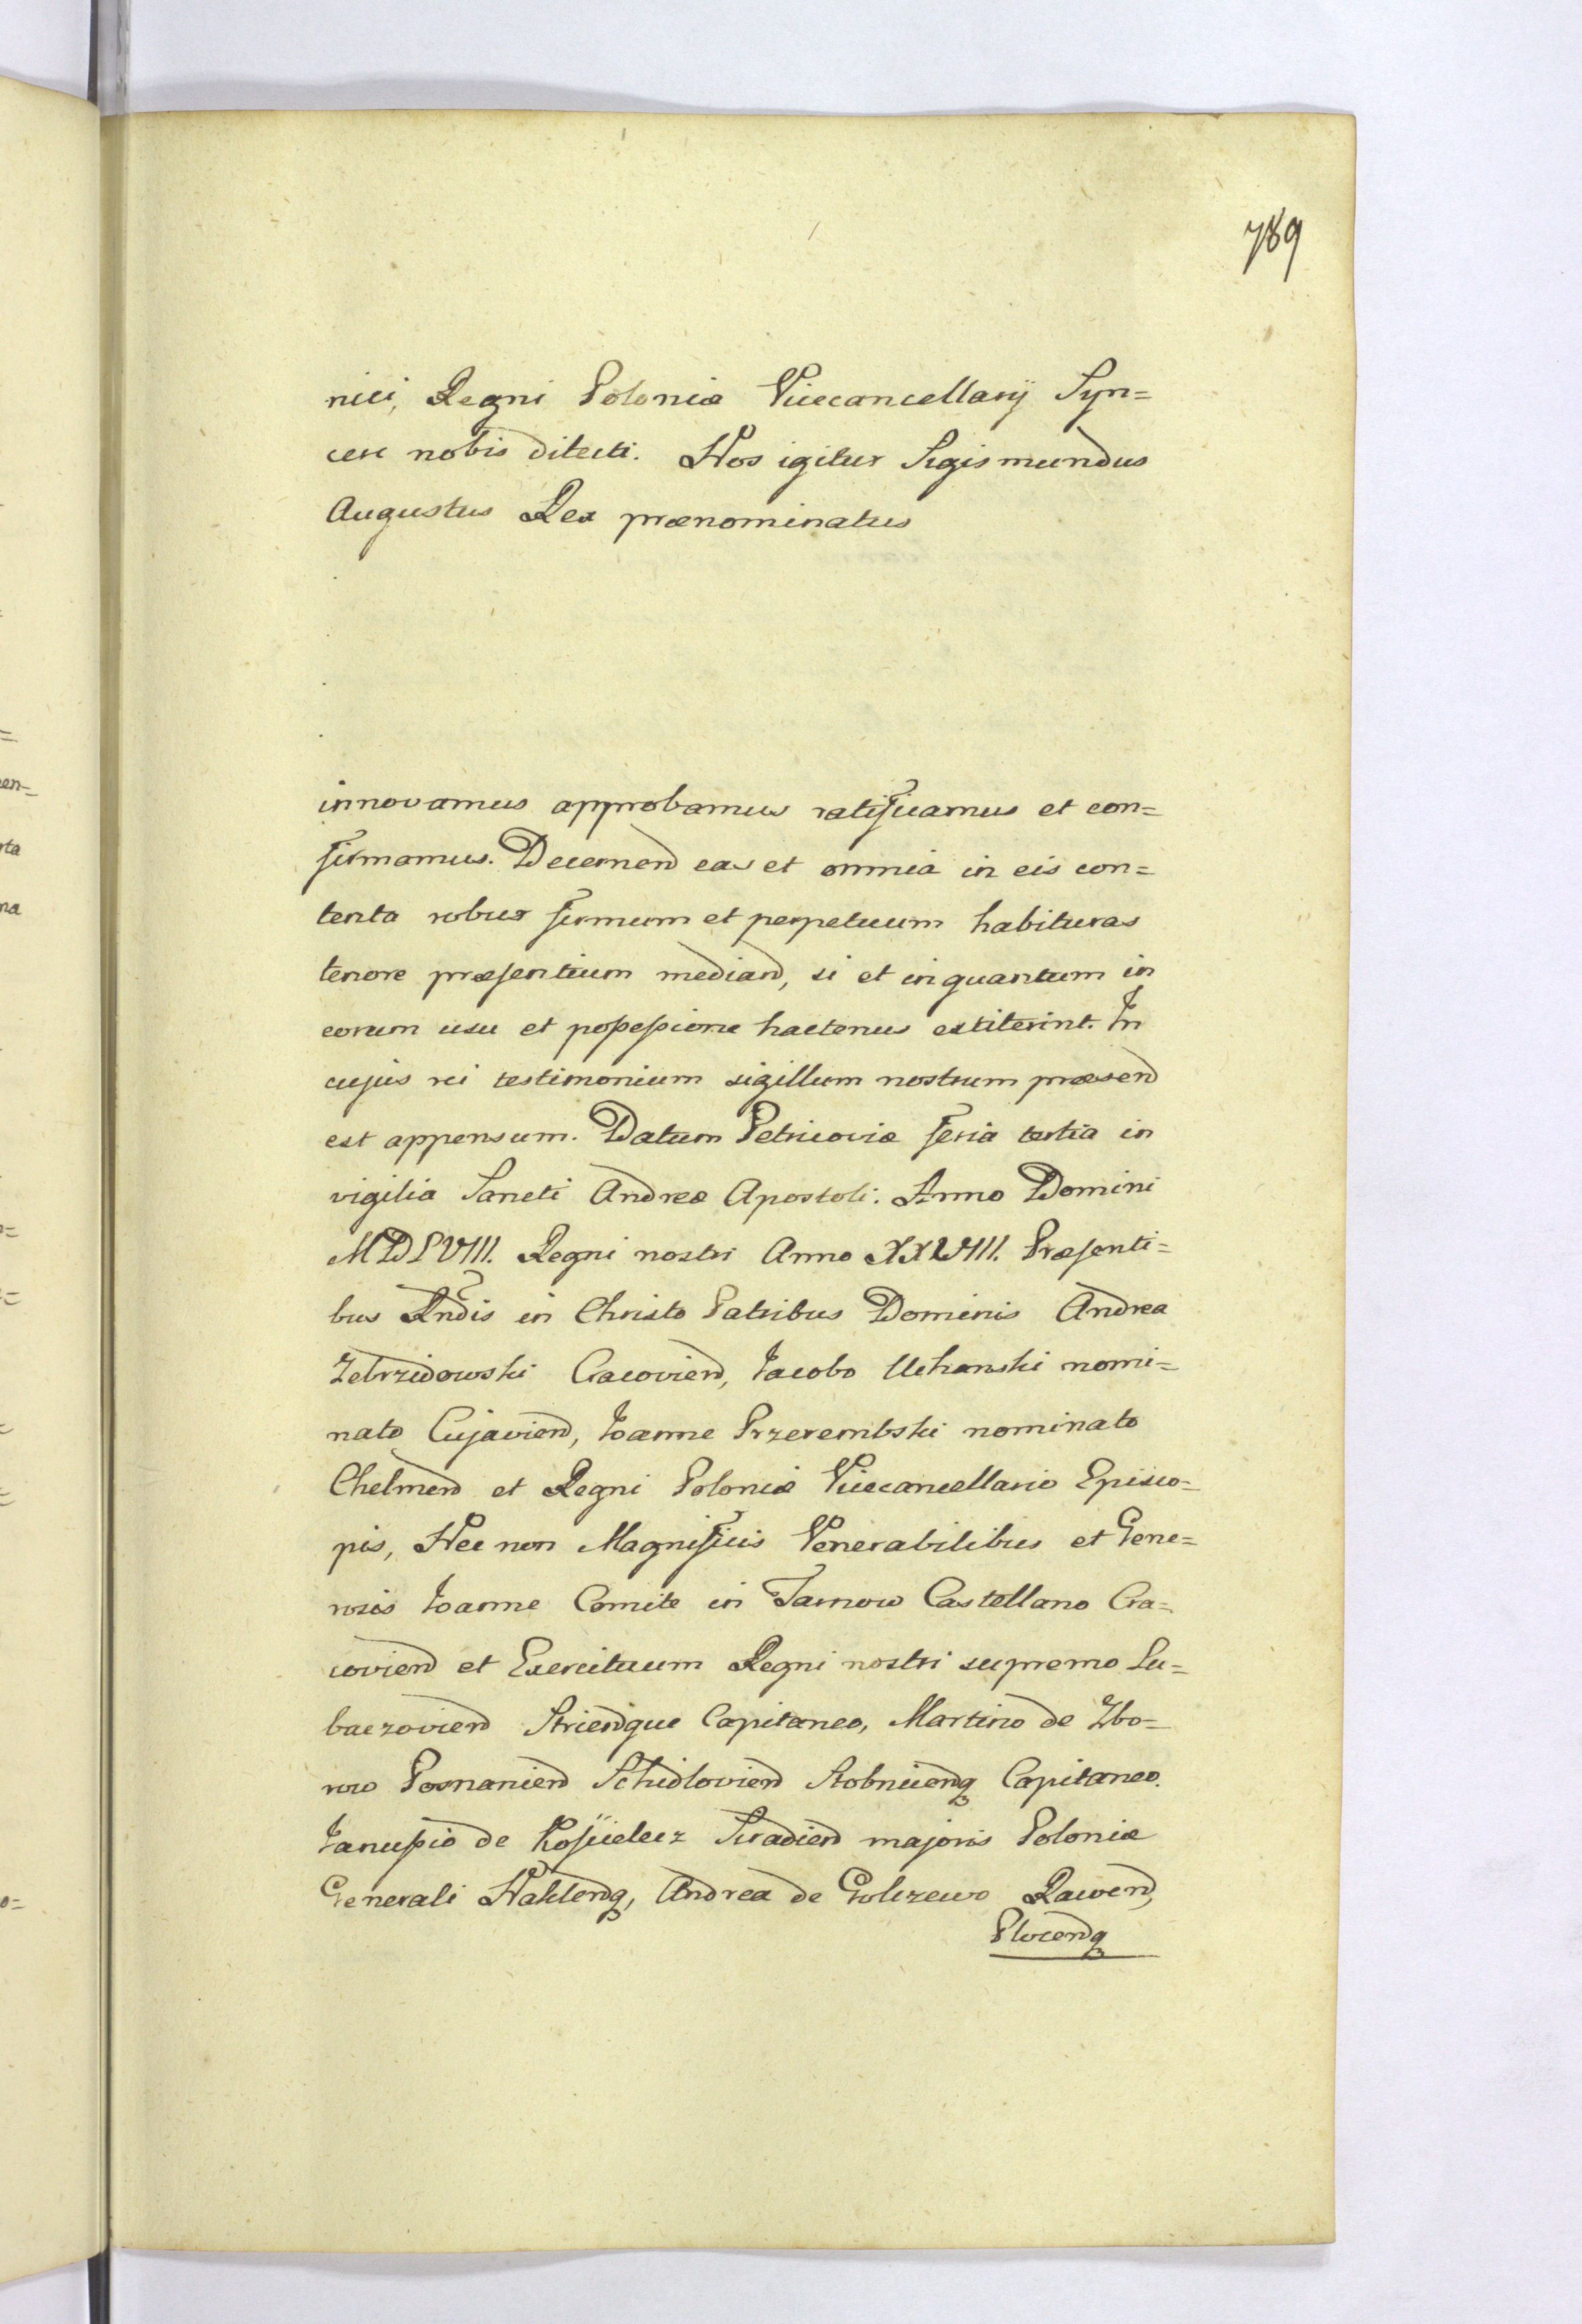 789
nici, Regni Poloniæ Vicecancellarij Syn=
cere nobis dilecti. Nos igitur Sigismundus
Augustus Rex prænominatus
innovamus approbamus ratificamus et con=
firmamus. Decernend eas et omnia in eis con=
tenta robur firmum et perpetuum habituras
tenore præsentium mediand, si et inquantum in
eorum usu et possessione hactenus extiterint. In
cujus rei testimonium sigillum nostrum præsend
est appensum. Datum Petricoviæ feria tertia in
vigilia Sancti Andreæ Apostoli. Anno Domini
MDLVIII. Regni nostri Anno XXVIII. Præsenti=
bus Rndis in Christo Patribus Dominis Andrea
Zebrzidowski Cracoviend, Jacobo Uchanski nomi=
nato Cujaviend, Joanne Przerembski nominato
Chelmend et Regni Poloniæ Vicecancellario Episco=
pis, Nec non Magnificis Venerabilibus et Gene=
rosis Joanne Comite in Tarnow Castellano Cra=
coviend et Exercituum Regni nostri supremo Lu=
baczoviend Striendque Capitaneo, Martino de Zbo=
row Posnaniend Schidloviend Stobniciendq Capitaneo.
Janussio de Kosscielecz Siradiend majoris Poloniæ
Generali Naklendq, Andrea de Golczewo Rawend,
Plocendq